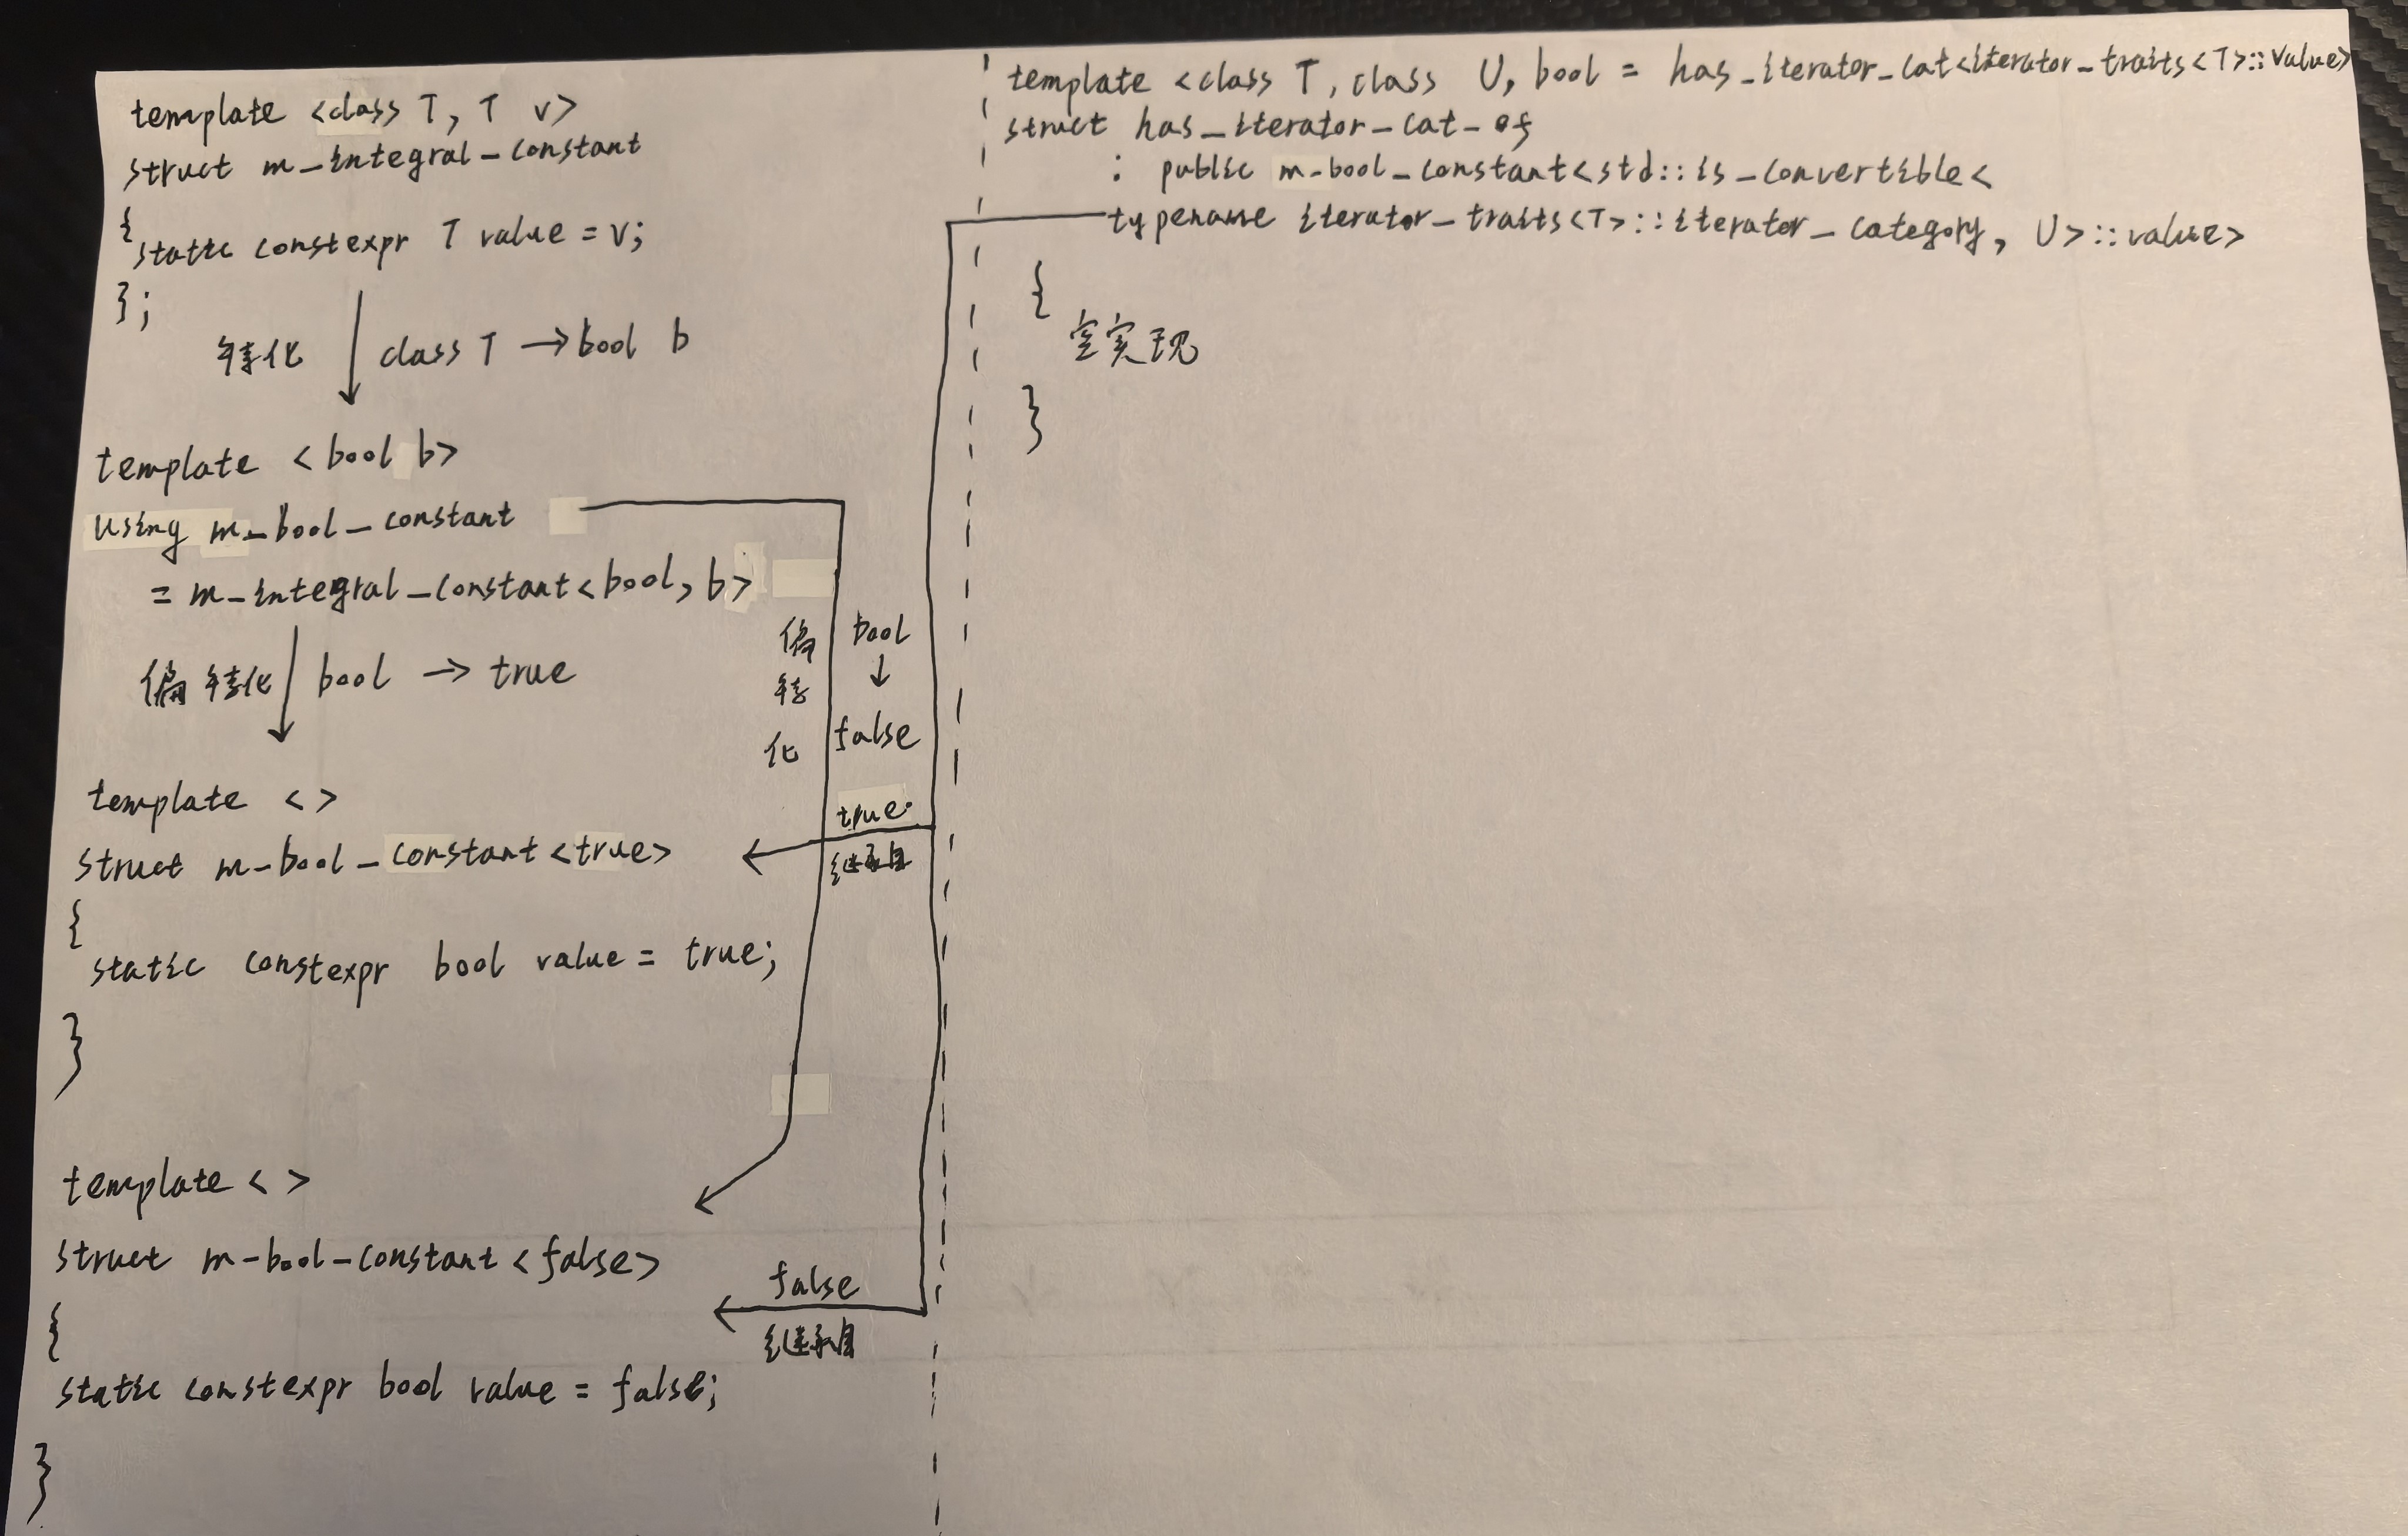 template <class T, T v>
struct m_integral_constant
{
static constexpr T value = v;
};
特化 class T → bool b
template <bool b>
using m_bool_constant
= m_integral_constant<bool, b>
偏特化 bool → true
偏
特
化
bool
↓
false
template <>
struct m_bool_constant<true>
{
static constexpr bool value = true;
}
true
继承自
template <>
struct m-bool-constant <false>
{
static constexpr bool value = false;
}
false
继承自
template <class T, class U, bool = has_iterator_cat<iterator_traits<T>::value>
struct has_iterator_cat_of
: public m-bool_constant<std::is_convertible<
typename iterator_traits<T>::iterator_category, U>::value>
{
空实现
}